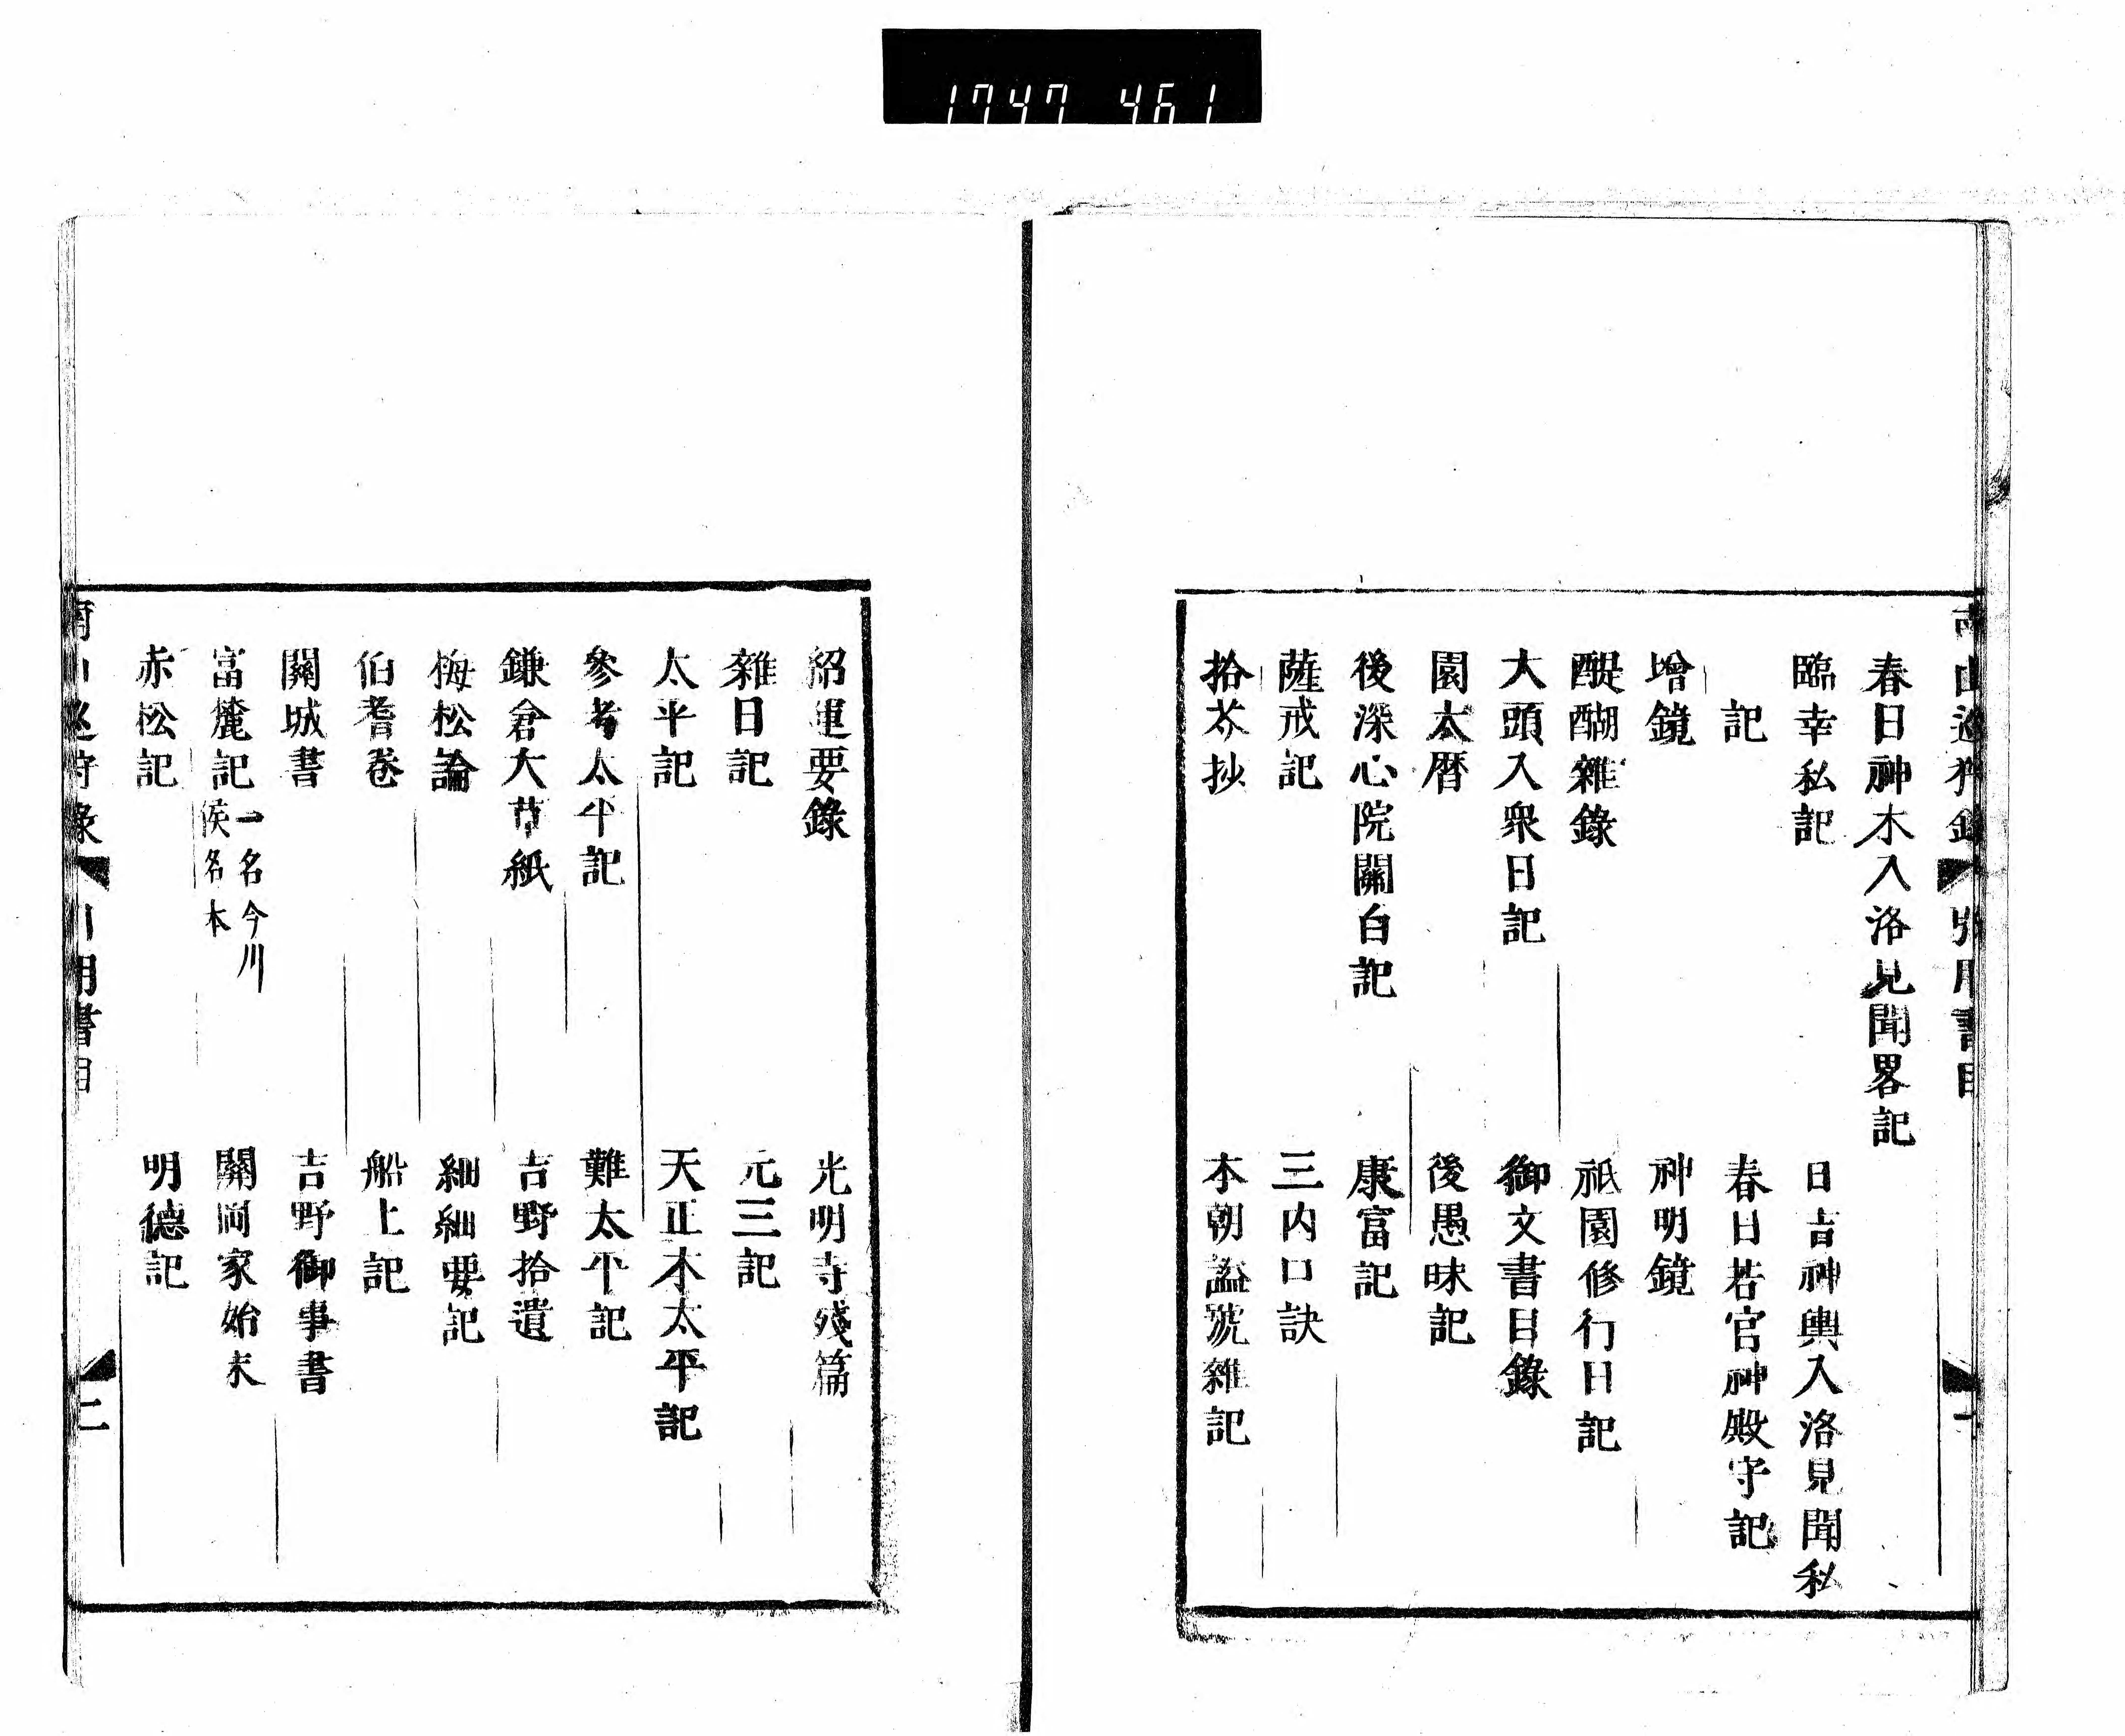 1747 461
春日神木入洛見聞畧記
臨幸私記　日吉神輿入洛見聞私
記　春日若宮神殿守記
增鏡　神明鏡
醍醐雜錄　祇園修行日記
大頭入衆日記　御文書目錄
園太暦　後愚昧記
後深心院關白記　康富記
薩戒記　三内口訣
拾芥抄　本朝謚號雜記
紹運要錄　光明寺殘篇
雜日記　元三記
太平記　天正本太平記
參考太平記　難太平記
鎌倉大草紙　吉野拾遺
梅松論　細細要記
伯耆卷　船上記
關城書　吉野御事書
富麓記 一名今川
侯名本　關岡家始末
赤松記　明德記
二